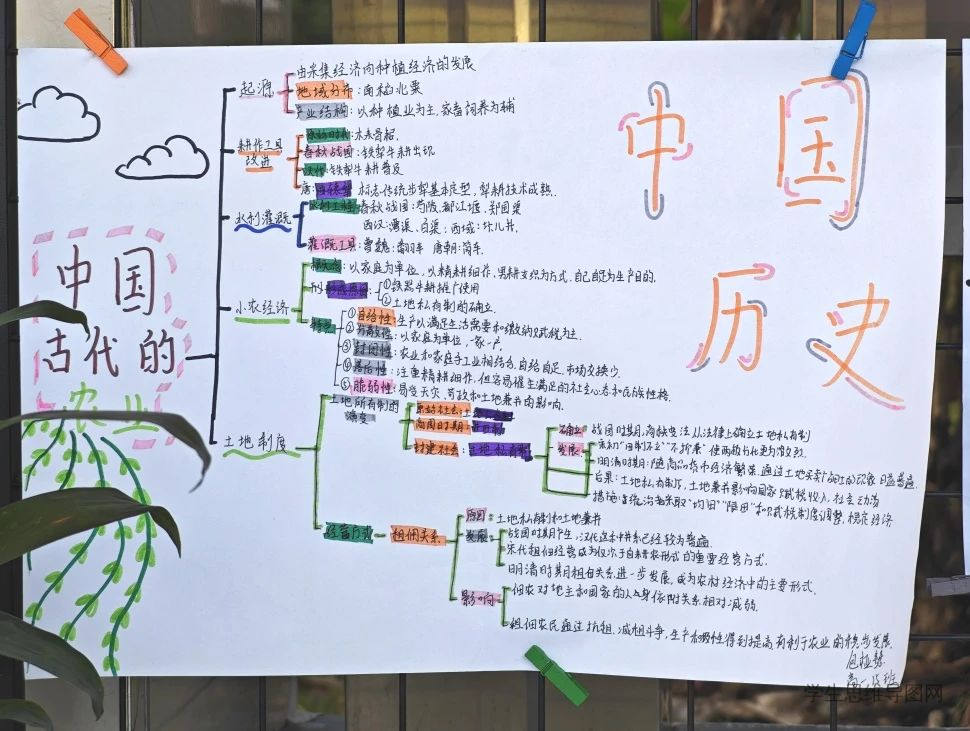 中国
历史
中国
古代的
农业
起源
由采集经济向种植经济的发展
地域分布:南稻北粟
产业结构:以种植业为主,家畜饲养为辅
耕作工具
改进
原始时代:木耒骨耜.
春秋战国:铁犁牛耕出现
汉代:铁犁牛耕普及
唐:曲辕犁 标志传统步犁基本定型,犁耕技术成熟.
水利灌溉
水利工程:春秋战国:芍陂、都江堰、郑国渠
西汉:漕渠、白渠;西域:坎儿井.
灌溉工具:曹魏:翻车 唐朝:筒车.
小农经济
以家庭为单位,以精耕细作,男耕女织为方式,自己自足为生产目的.
①铁器牛耕推广使用
②土地私有制的确立.
特点
①自给性:生产以满足生活需要和缴纳赋税为主.
②分散性:以家庭为单位,一家一户,
③封闭性:农业和家庭手工业相结合,自给自足,市场交换少.
④落后性:注重精耕细作,但容易催生满足的社会心态和民族性格.
⑤脆弱性:易受天灾、苛政和土地兼并的影响.
土地制度
土地所有制的
演变
原始社会:土地
商周时期:井田制
封建社会:土地私有制
确立:战国时期,商鞅变法从法律上确立土地私有制
发展:
明清时期:随商品货币经济繁荣,通过土地买卖 的现象日益普遍.
后果:土地私有制下,土地兼并影响国家赋税收入,社会动荡
措施:统治者采取"均田""限田"和赋税制度调整,稳定经济
经营方式
租佃关系
原因:土地私有制和土地兼并
发展
战国时期产生,汉代这种耕作已经较为普遍.
宋代租佃经营成为仅次于自耕农形式的重要经营方式.
明清时期租佃关系进一步发展,成为农村经济中的主要形式.
影响
佃农对地主和国家的人身依附关系相对减弱.
租佃农民通过抗租、减租斗争,生产积极性得到提高,有利于农业的进步发展.
学生思维导图网